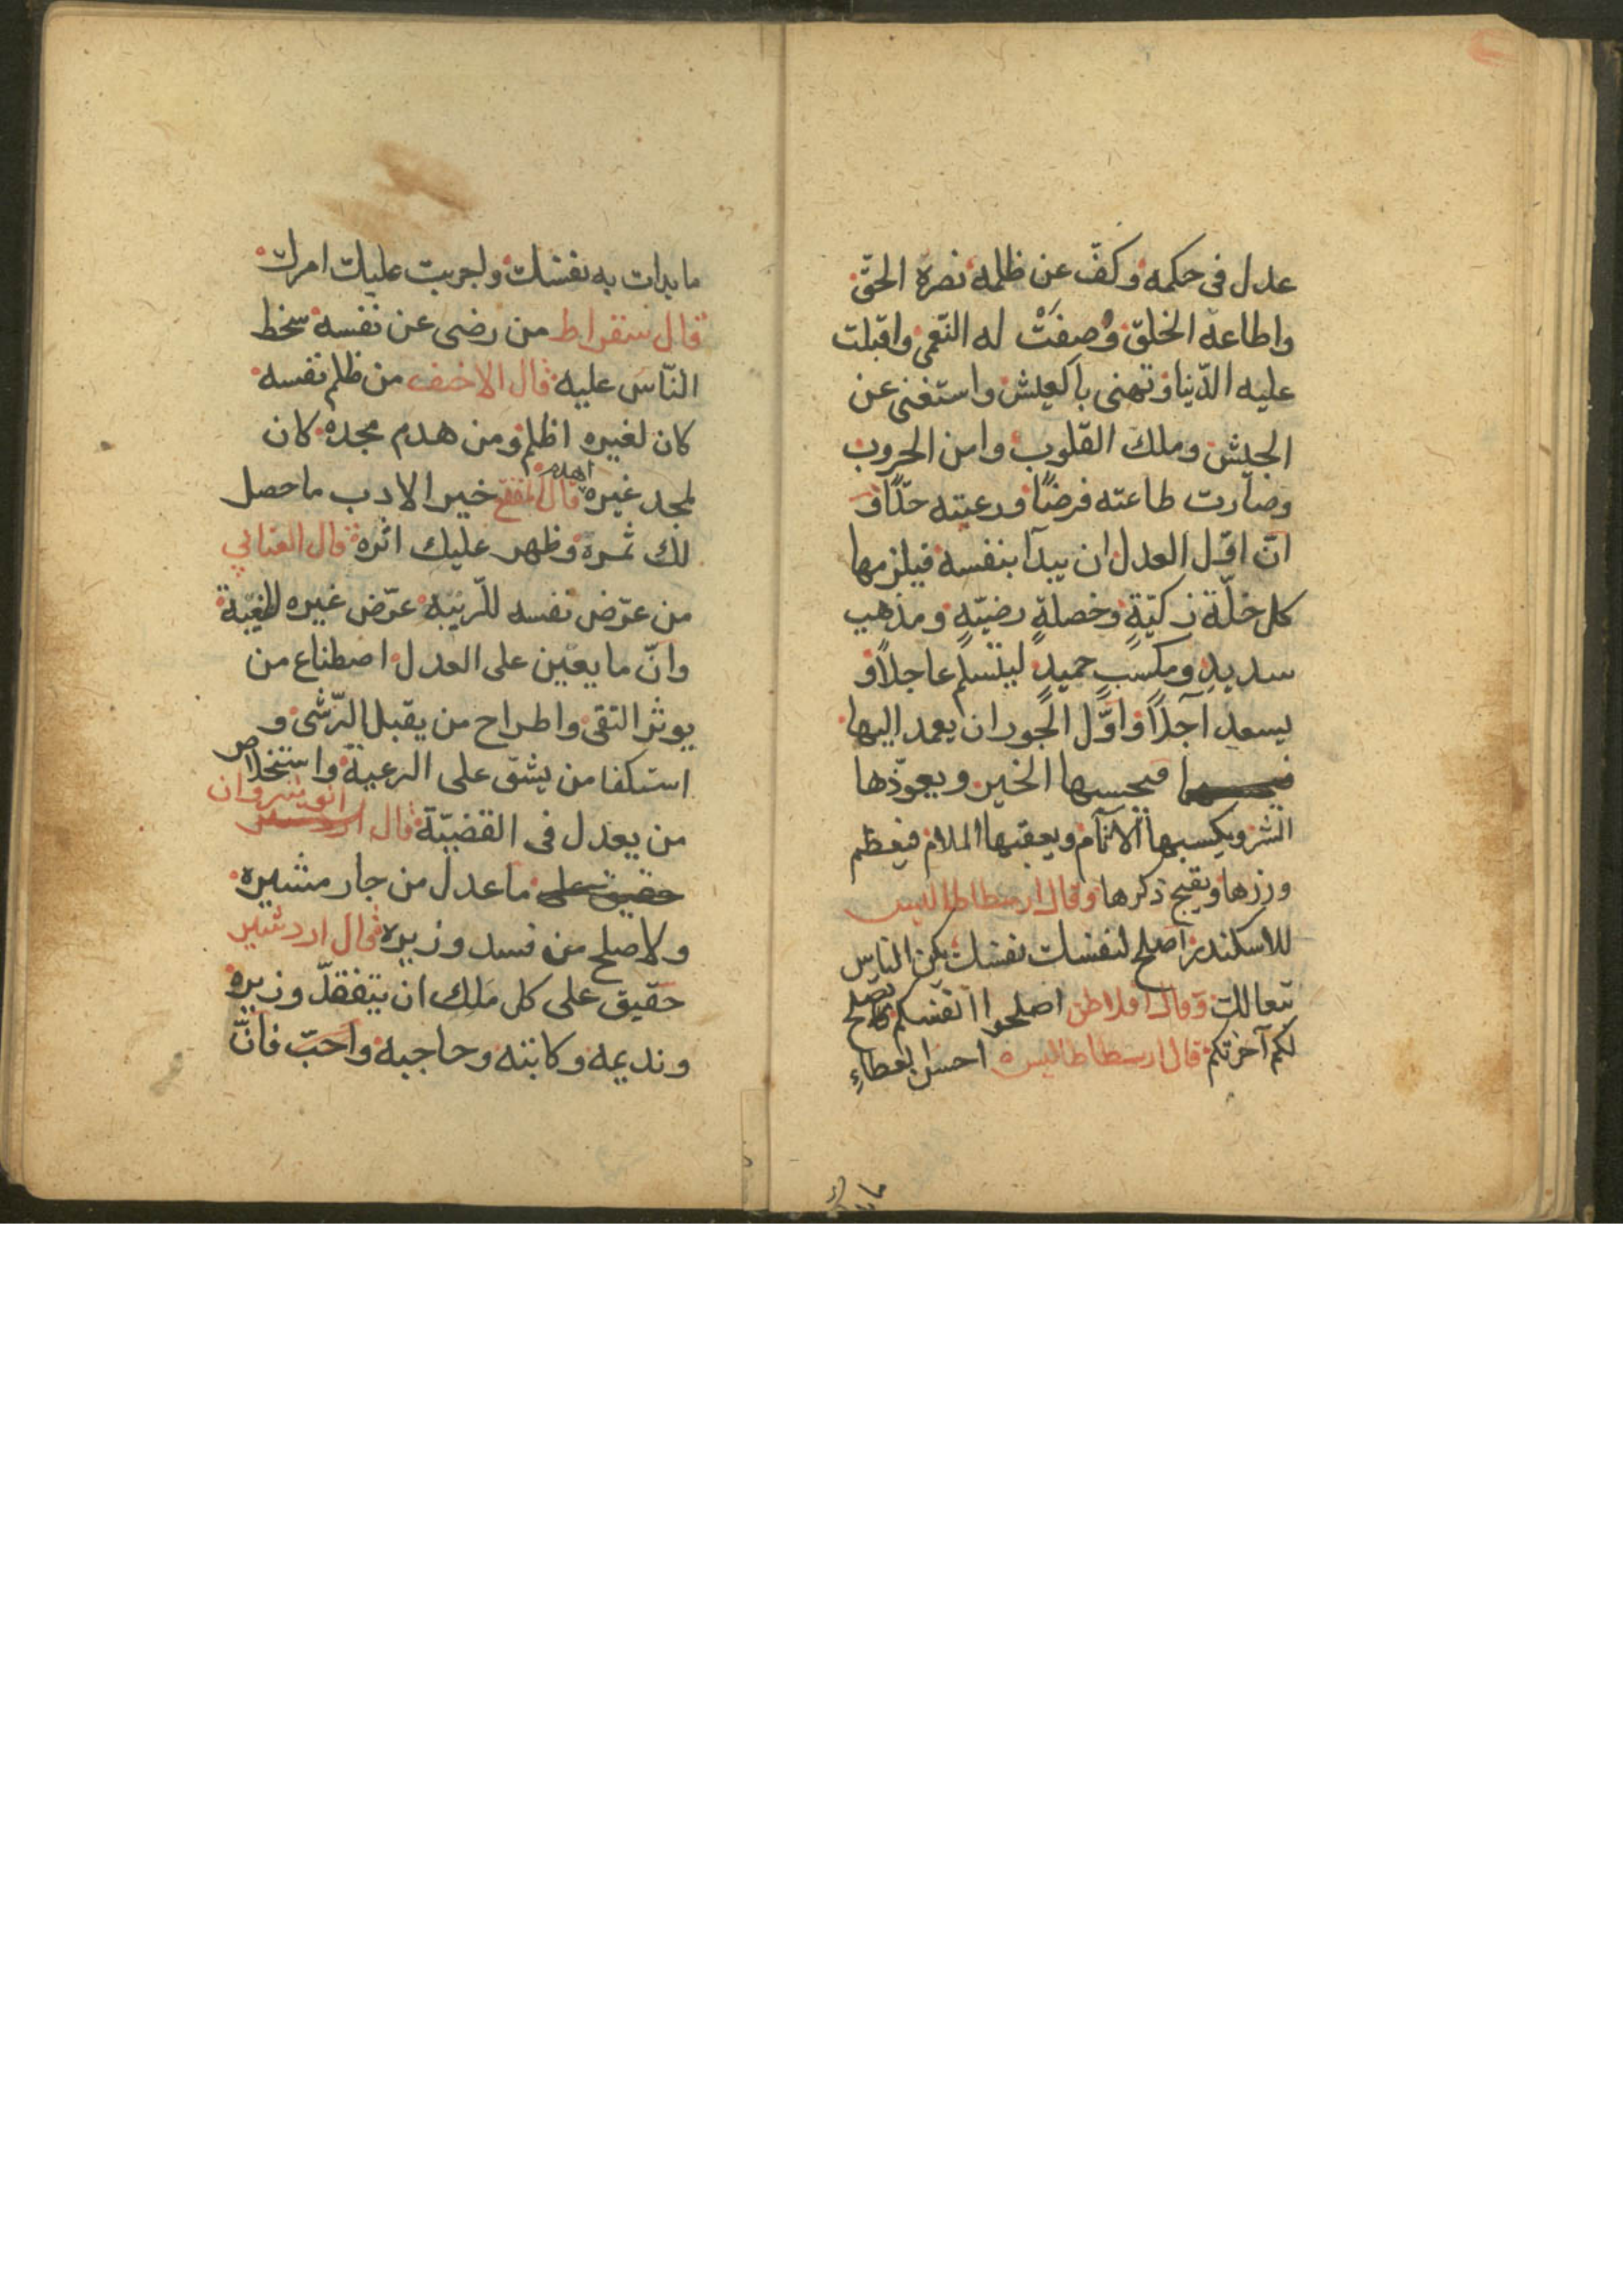 عدل فى حكمه وكفّ عن ظلمه نصره الحقّ
واطاعه الخلق وصفَتْ له النّعمى واقبلت
عليه الدّنيا وتهنى بالعيش واستغنى عن
الجيش وملك القلوب وامن الحروب
وصارت طاعته فرضًا ورعيته
انّ اوّل العدل ان يبدأ بنفسه فيلزمها
كل خلّة زكيّةٍ وخصلةٍ رضيّةٍ ومذهب
سديدٍ ومكسبٍ حميدٍ ليسلم عاجلاً و
يسعد آجلاً واوّل الجور ان يعمد اليها
فيجنبها الخير ويعوّذها
الشر ويكسبها الآثام ويعقبها الملام فيعظم
وزرها ويقبح ذكرها وقال ارسطاطاليس
للاسكندر اصلح لنفسك نفسك يكن الناس
تبعا لك وقال افلاطن اصلحوا انفسكم تصلح
لكم آخرتكم قال ارسطاطاليس احسن
ما بدات به نفسك واجريت عليك امرك
قال سقراط من رضى عن نفسه سخط
النّاس عليه قال الاحنف من ظلم نفسه
كان لغيره اظلم ومن هدم مجده كان
لمجد غيره اهدم قال المقفع خير الادب ما حصل
لك ثمره وظهر عليك اثره قال العتابي
من عرّض نفسه للرّيبه عرّض غيره للغيبة
وانّ ما يعين على العدل اصطناع من
يوثر التقى واطراح من يقبل الرّشى و
استكفا من يشق على الرعية واستخلاص
من يعدل فى القضيّة قال انوشروان
حقيق على ما عدل من جار مشيره
ولا صلح من فسد وزيره قال اردشير
حقيق على كل ملك ان يتفقّد وزيره
ونديمه وكاتبه وحاجبه فانّ